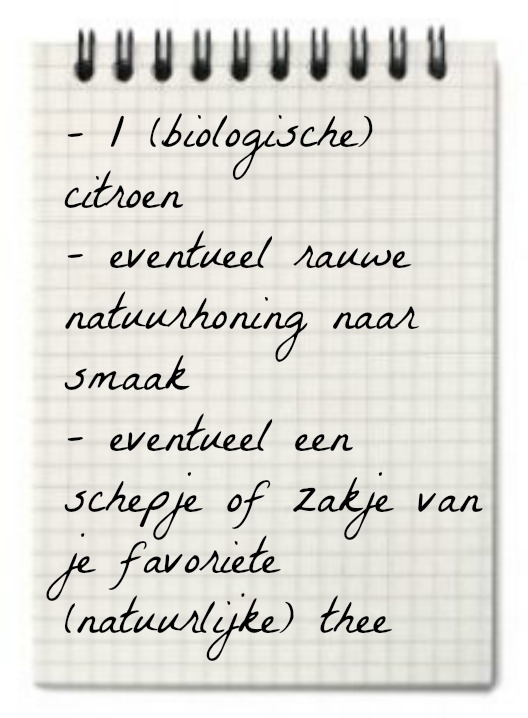 - 1 (biologische)
citroen
- eventueel rauwe
natuurhoning naar
smaak
- eventueel een
schepje of zakje van
je favoriete
(natuurlijke) thee